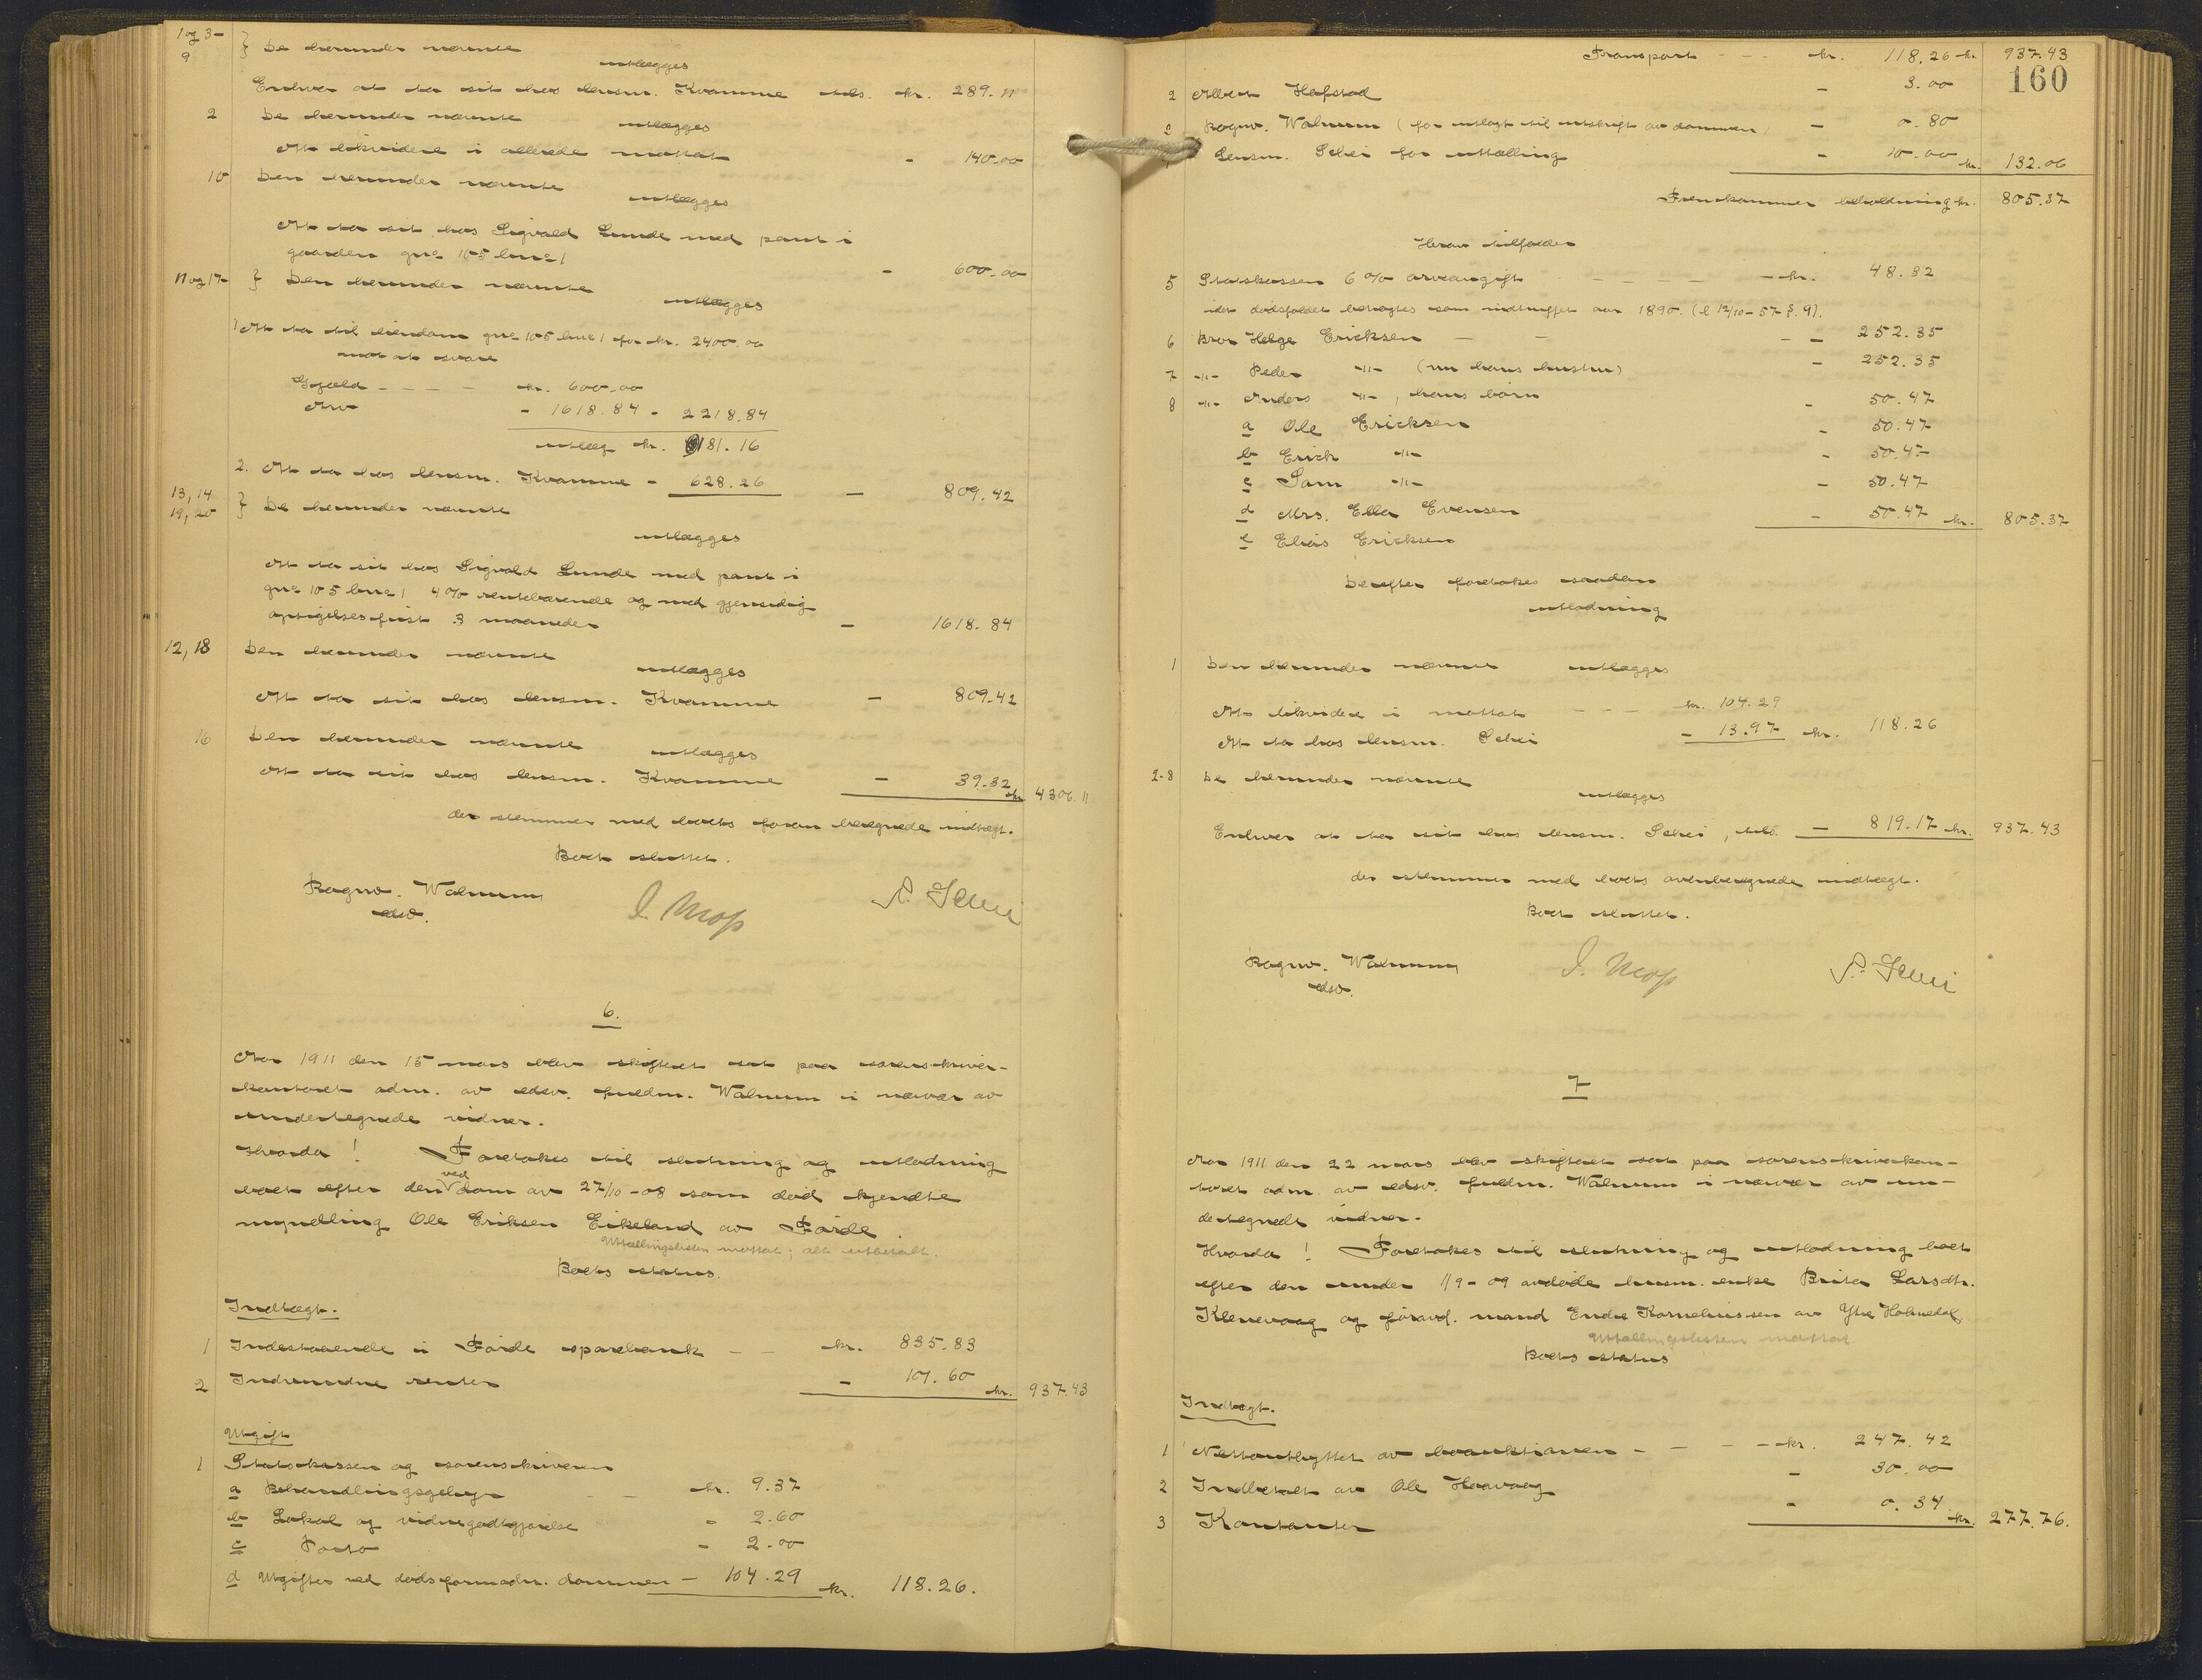 1 og 3-
9 } De herunder nævnte
utlægges
Enhver at ta sit hos lensm. Kvamme tils. kr. 289.11
2 De herunder nævnte
utlægges
At likvidere i allerede mottat - 140.00
10 Den herunder nævnte
utlægges
At ta sit hos Sigvald Lunde med pant i
gaarden gno 105 bno 1 - 600.00
11 og 17 } Den herunder nævnte
utlægges
1 At ta til eiendom gno 105 bno 1 for kr. 2400.00
mot at svare
Gjæld - - - - kr. 600.00
Arv - 1618.84 - 2218.84
utlæg kr. 181.16
2. At ta hos lensm. Kvamme - 628.26 - 809.42
13, 14
19, 20 } De herunder nævnte
utlægges
At ta sit hos Sigvald Lunde med pant i
gno 105 bno 1 4% rentebærende og med gjensidig
opsigelsesfrist 3 maaneder - 1618.84
12, 18 Den herunder nævnte
utlægges
At ta sit hos lensm. Kvamme - 809.42
16 Den herunder nævnte
utlægges
At ta sit hos lensm. Kvamme - 39.32 kr. 4306.11
der stemmer med boets foran beregnede indtægt.
Boet sluttet.
Ragnv. Walnum
edsv.
I. Mop
S. Schei
6.
Aar 1911 den 15 mars blev skifteret sat paa sorenskriver-
kontoret adm. av edsv. fuldm. Walnum i nærvær av
undertegnede vidner.
Hvorda! Foretokes til slutning og utlodning
boet efter den ved dom av 27/10-08 som død kjendte
myndling Ole Eriksen Eikeland av Førde.
Uttællingslisten mottat; alt utbetalt.
Boets status.
Indtægt.
1 Indestaaende i Førde sparebank - - kr. 835.83
2 Indvundne renter - 101.60 kr. 937.43
Utgift
1 Statskassen og sorenskriveren
a Behandlingsgebyr - - kr. 9.37
b Lokal og vidnegodtgjørelse - 2.60
c Porto - 2.00
d Utgifter ved dødsformodn. dommen - 104.29 kr. 118.26.
Transport - - kr. 118.26 kr. 937.43
160
2 Albert Hafstad - 3.00
3 Ragnv. Walnum (for utlagt til utskrift av dommen) - 0.80
4 Lensm. Schei for uttælling - 10.00 kr. 132.06
Fremkommer beholdning kr. 805.37
Herav tilfalder
5 Statskassen 6% arveavgift - - - - - kr. 48.32
idet dødsfaldet betragtes som indtruffet aar 1890. (l 12/10-57 §. 9).
6 Bror Helge Ericksen - - - 252.35
7 -"- Peder -"- (nu hans hustru) - 252.35
8 -"- Anders -"- , hans børn - 50.47
a Ole Ericksen - 50.47
b Erick -"- - 50.47
c Sam -"- - 50.47
d Mrs. Ella Evensen - 50.47 kr. 805.37
e Elias Ericksen
Derefter foretokes saadan
utlodning
1 Den herunder nævnte utlægges
At likvidere i mottat - - - kr. 104.29
At ta hos lensm. Schei - 13.97 kr. 118.26
2-8 De herunder nævnte
utlægges
Enhver at ta sit hos lensm. Schei, tils. - 819.17 kr. 937.43
der stemmer med boets ovenberegnede indtægt.
Boet sluttet.
Ragnv. Walnum
edsv.
I. Mop
S. Schei
7
Aar 1911 den 22 mars blev skifteret sat paa sorenskriverkon-
toret adm. av edsv. fuldm. Walnum i nærvær av un-
dertegnede vidner.
Hvorda! Foretokes til slutning og utlodning boet
efter den under 1/9-09 avdøde husm. enke Brita Larsdtr.
Klenevaag og foravd. mand Endre Korneliussen av Ytre Holmedal
Uttællingslisten mottat.
Boets status
Indtægt.
1 Nettoutbyttet av boauktionen - - - - kr. 247.42
2 Indbetalt av Ole Haavaag - 30.00
3 Kontanter - 0.34 kr. 277.76.